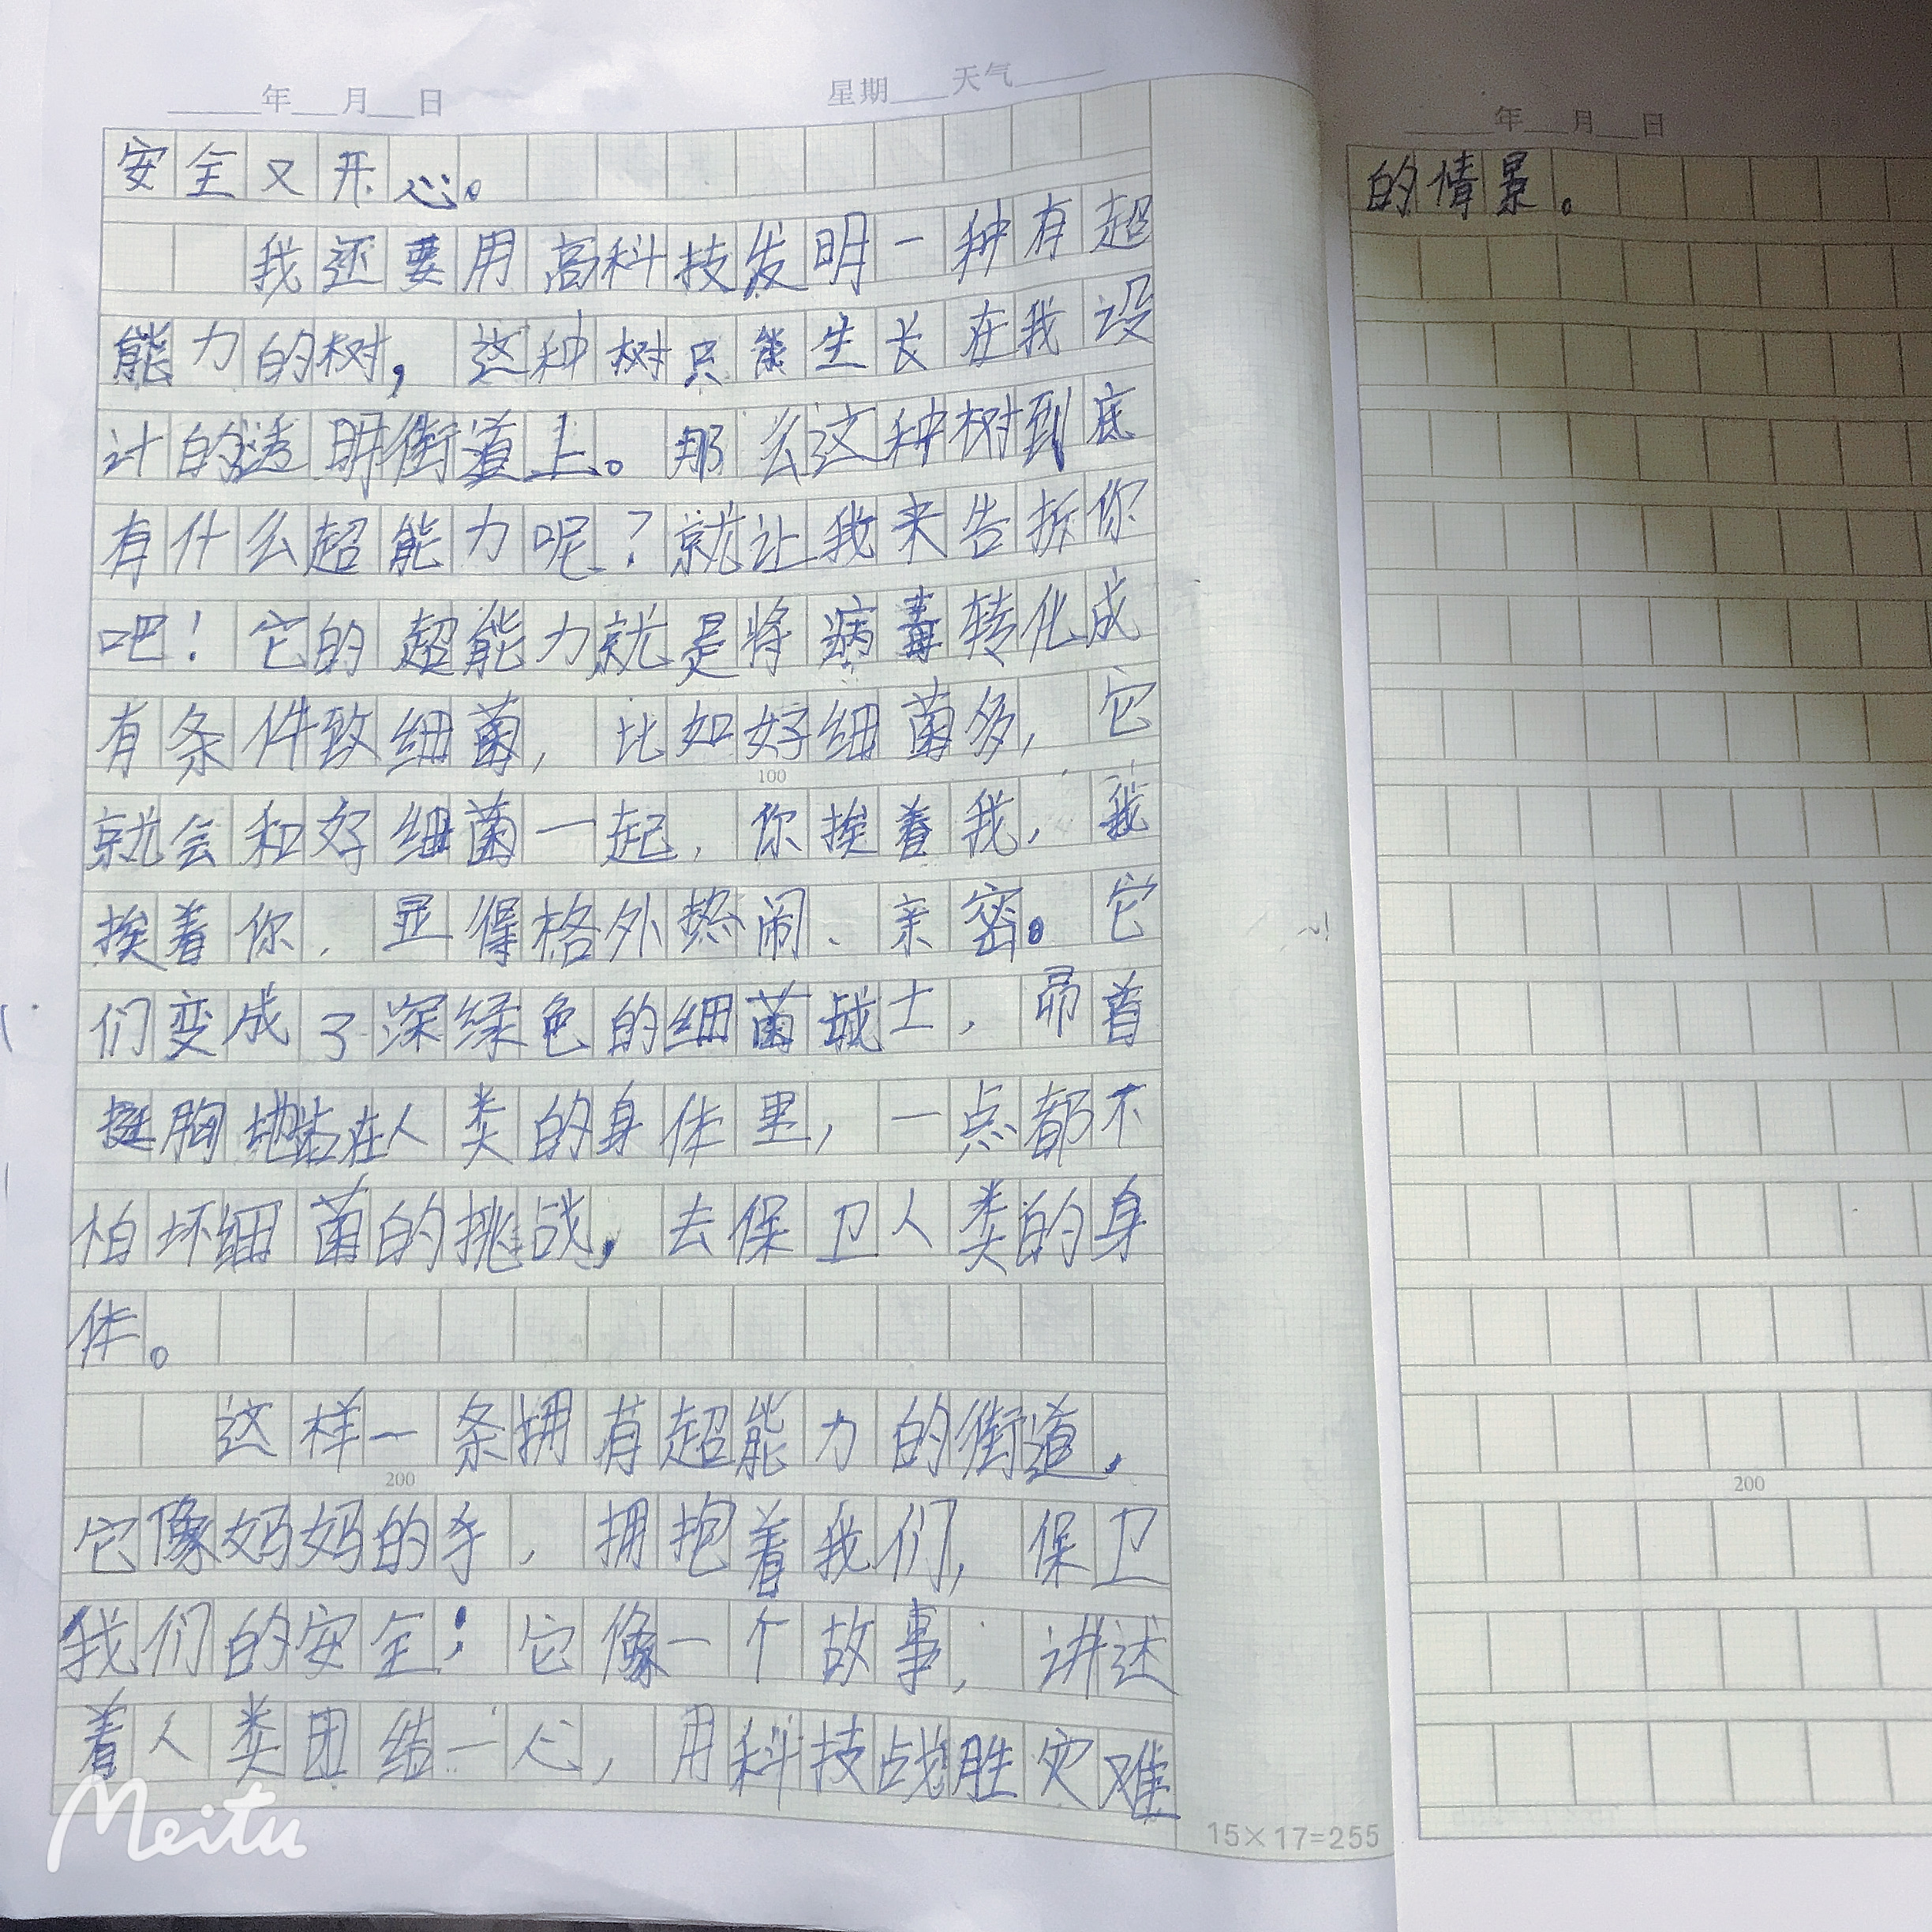 年 月 日 星期 天气
安全又开心。
我还要用高科技发明一种有超
能力的树，这种树只能生长在我设
计的透明街道上。那么这种树到底
有什么超能力呢？就让我来告拆你
吧！它的超能力就是将病毒转化成
有条件致细菌，比如好细菌多，它
100
就会和好细菌一起，你挨着我，我
挨着你，显得格外热闹、亲密。它
们变成了深绿色的细菌战士，昂首
挺胸地站在人类的身体里，一点都不
怕坏细菌的挑战，去保卫人类的身
体。
这样一条拥有超能力的街道，
200
它像妈妈的手，拥抱着我们，保卫
我们的安全；它像一个故事，讲述
着人类团结一心，用科技战胜灾难
15×17=255
Meitu
年 月 日
的情景。
200